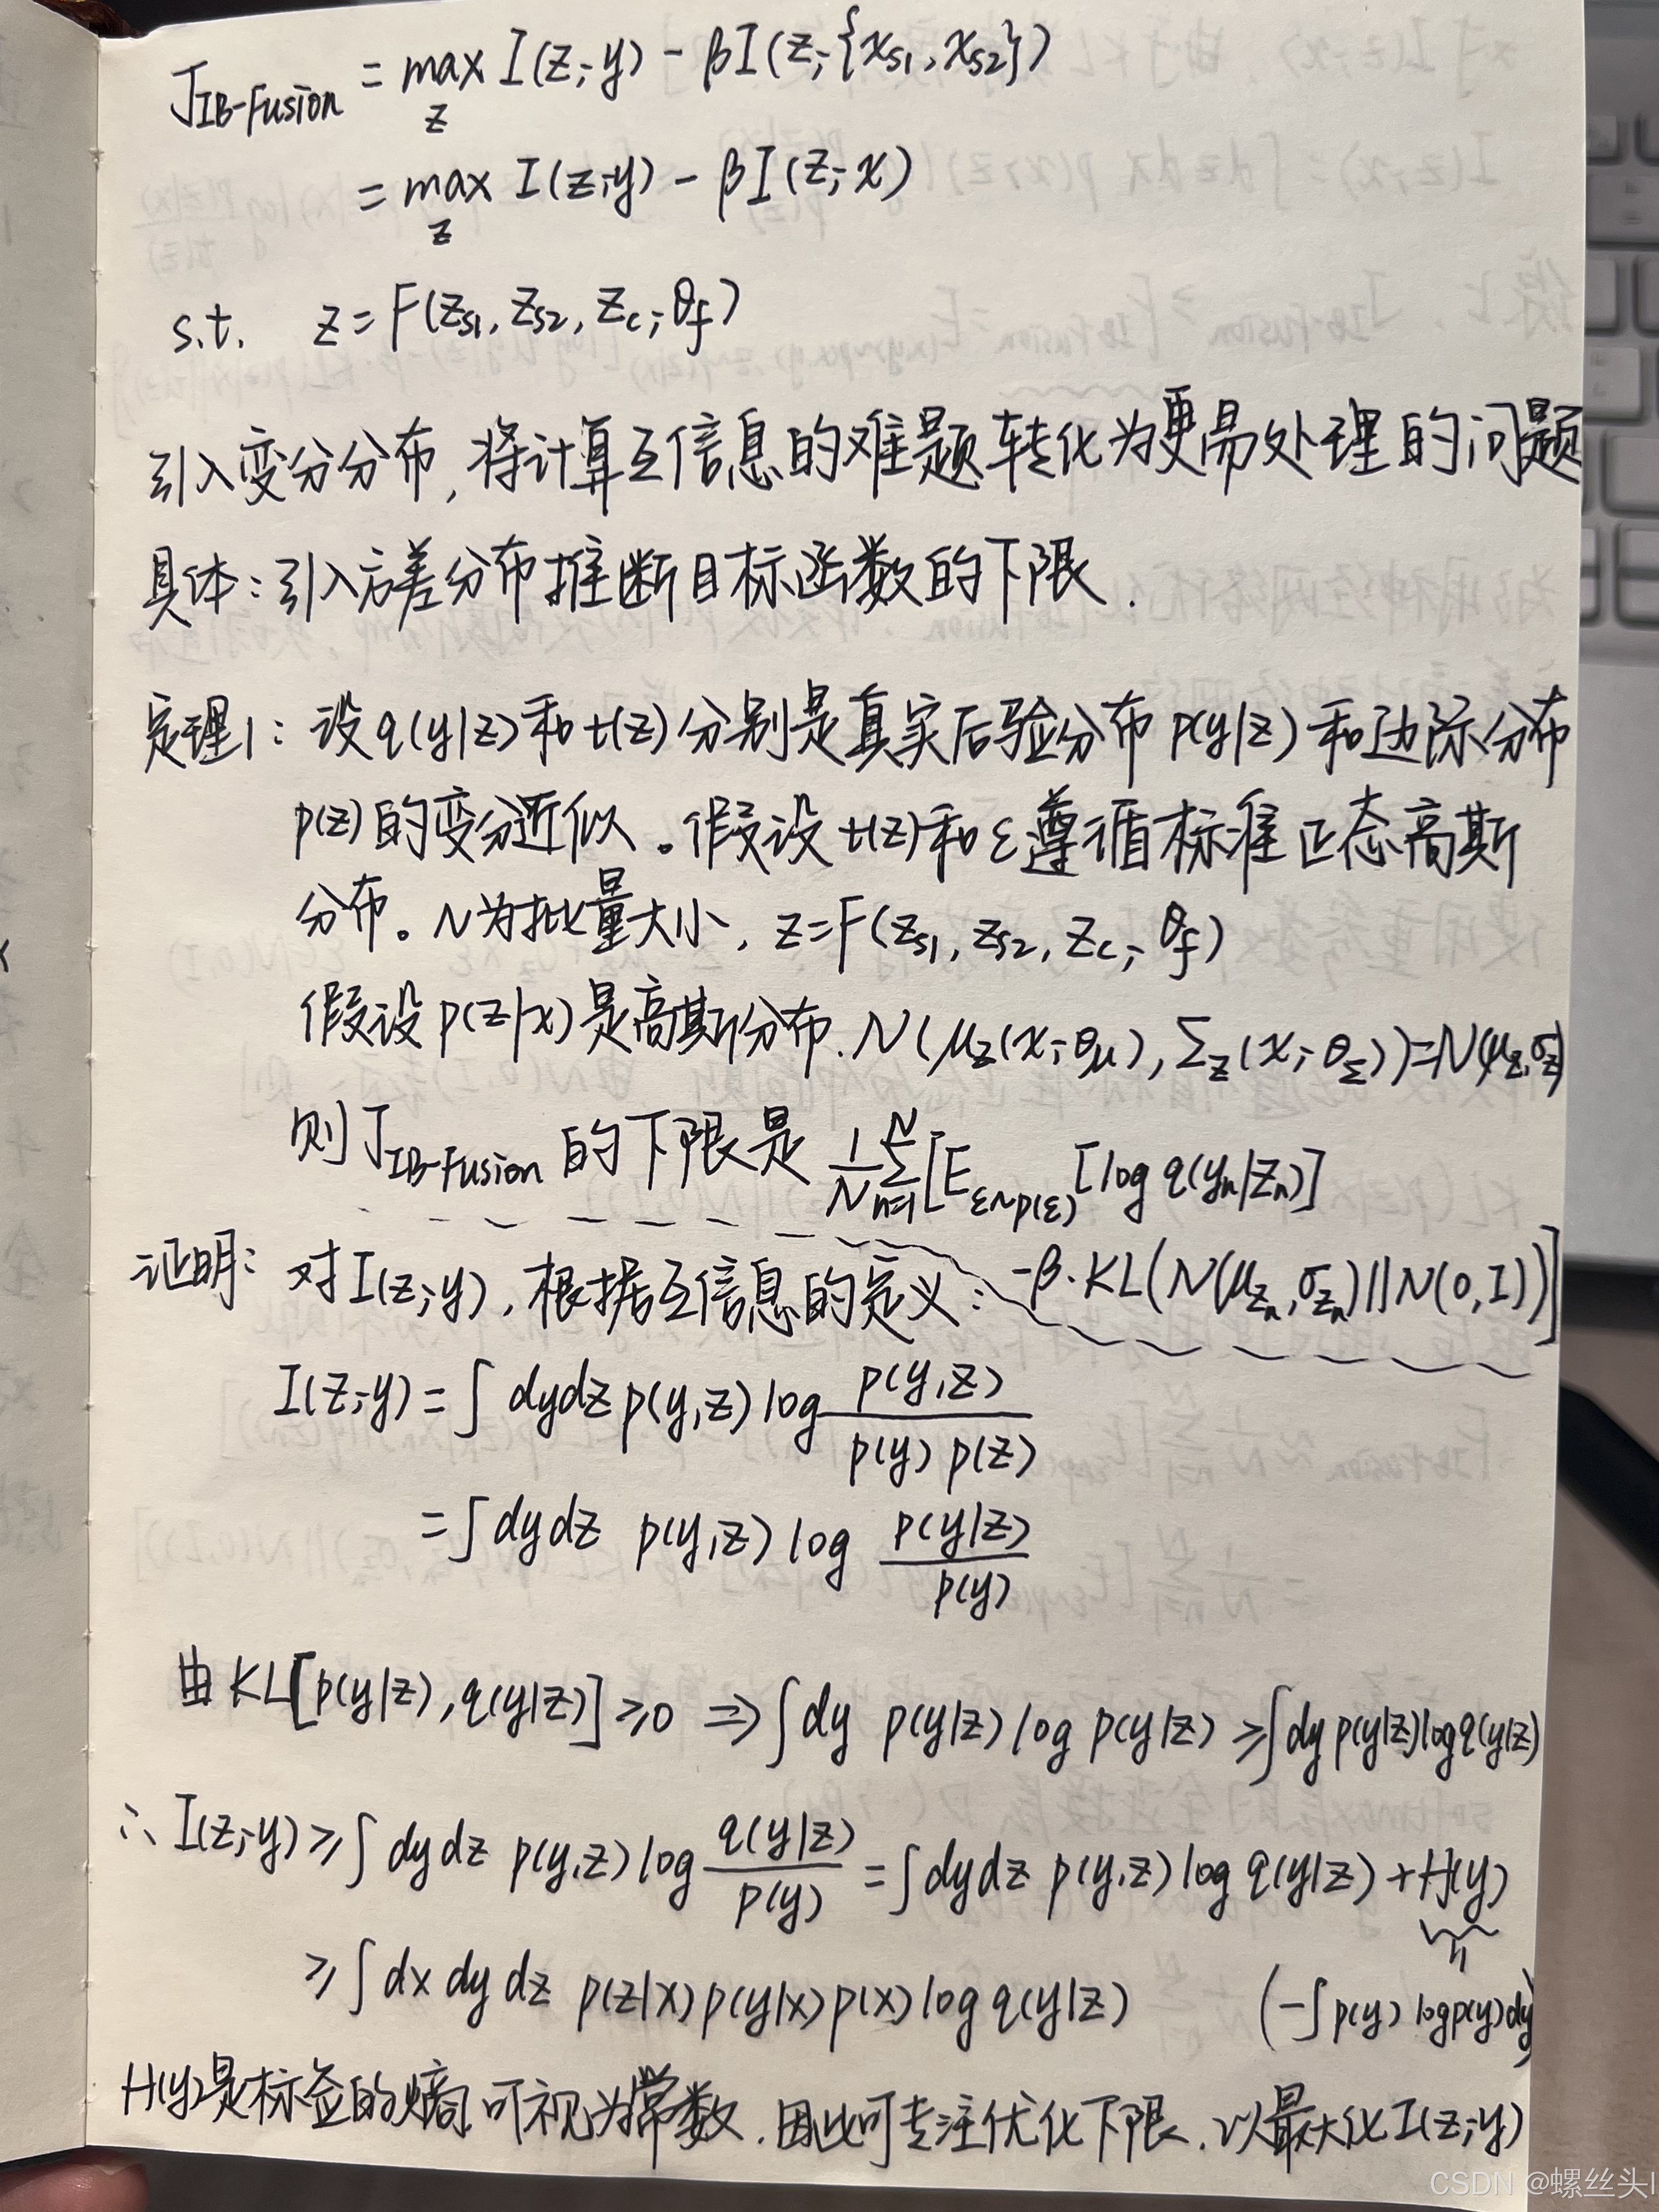 J_IB-Fusion = max_z I(z;y) - βI(z;{x_s1, x_s2})
= max_z I(z;y) - βI(z;x)
s.t. z = F(z_s1, z_s2, z_c; θ_f)
引入变分分布,将计算互信息的难题转化为更易处理的问题
具体:引入方差分布推断目标函数的下限.
定理1:设q(y|z)和t(z)分别是真实后验分布p(y|z)和边际分布
p(z)的变分近似。假设t(z)和ε遵循标准正态高斯
分布。N为批量大小,z=F(z_s1, z_s2, z_c; θ_f)
假设p(z|x)是高斯分布.N(μ_z(x;θ_μ), Σ_z(x;θ_Σ))=N(μ_z,σ_z)
则J_IB-Fusion的下限是 1/N Σ_{n=1}^N [E_{ε~p(ε)}[log q(y_n|z_n)]
-β·KL(N(μ_{z_n},σ_{z_n})||N(0,I))]
证明:对I(z;y),根据互信息的定义:
I(z;y) = ∫dydz p(y,z) log p(y,z) / p(y)p(z)
= ∫dydz p(y,z) log p(y|z) / p(y)
由KL[p(y|z),q(y|z)]≥0 ⇒ ∫dy p(y|z) log p(y|z) ≥ ∫dy p(y|z) log q(y|z)
∴ I(z;y) ≥ ∫dydz p(y,z) log q(y|z) / p(y) = ∫dydz p(y,z) log q(y|z) + H(y)
≥ ∫dx dy dz p(z|x)p(y|x)p(x) log q(y|z) (-∫p(y) log p(y)dy)
H(y)是标签的熵,可视为常数.因此可专注优化下限,以最大化I(z;y)
CSDN @螺丝头l